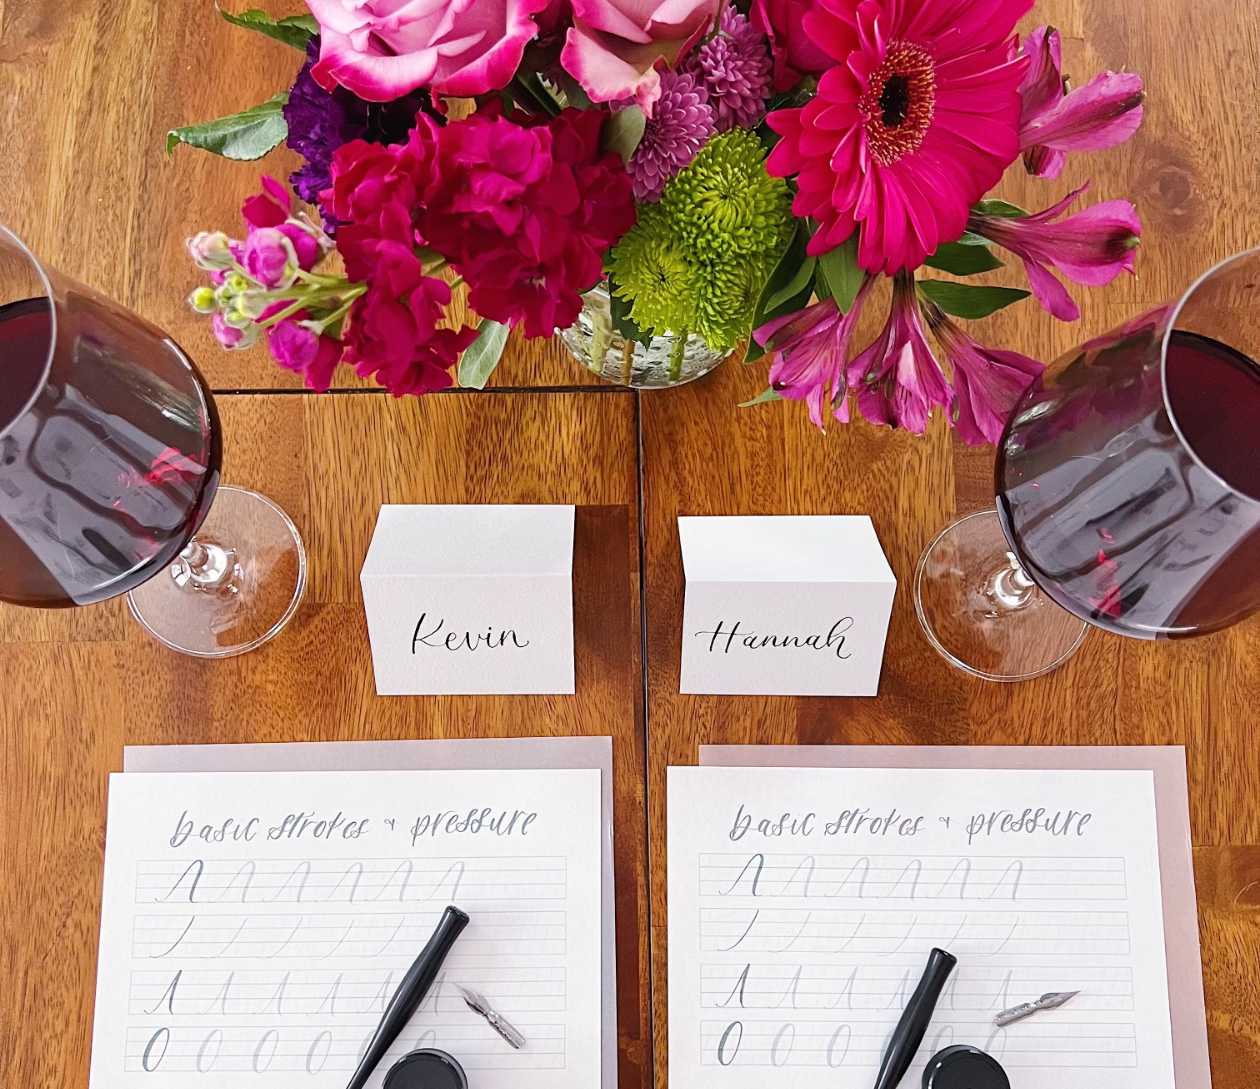 Kevin
Hannah
basic strokes & pressure
basic strokes & pressure